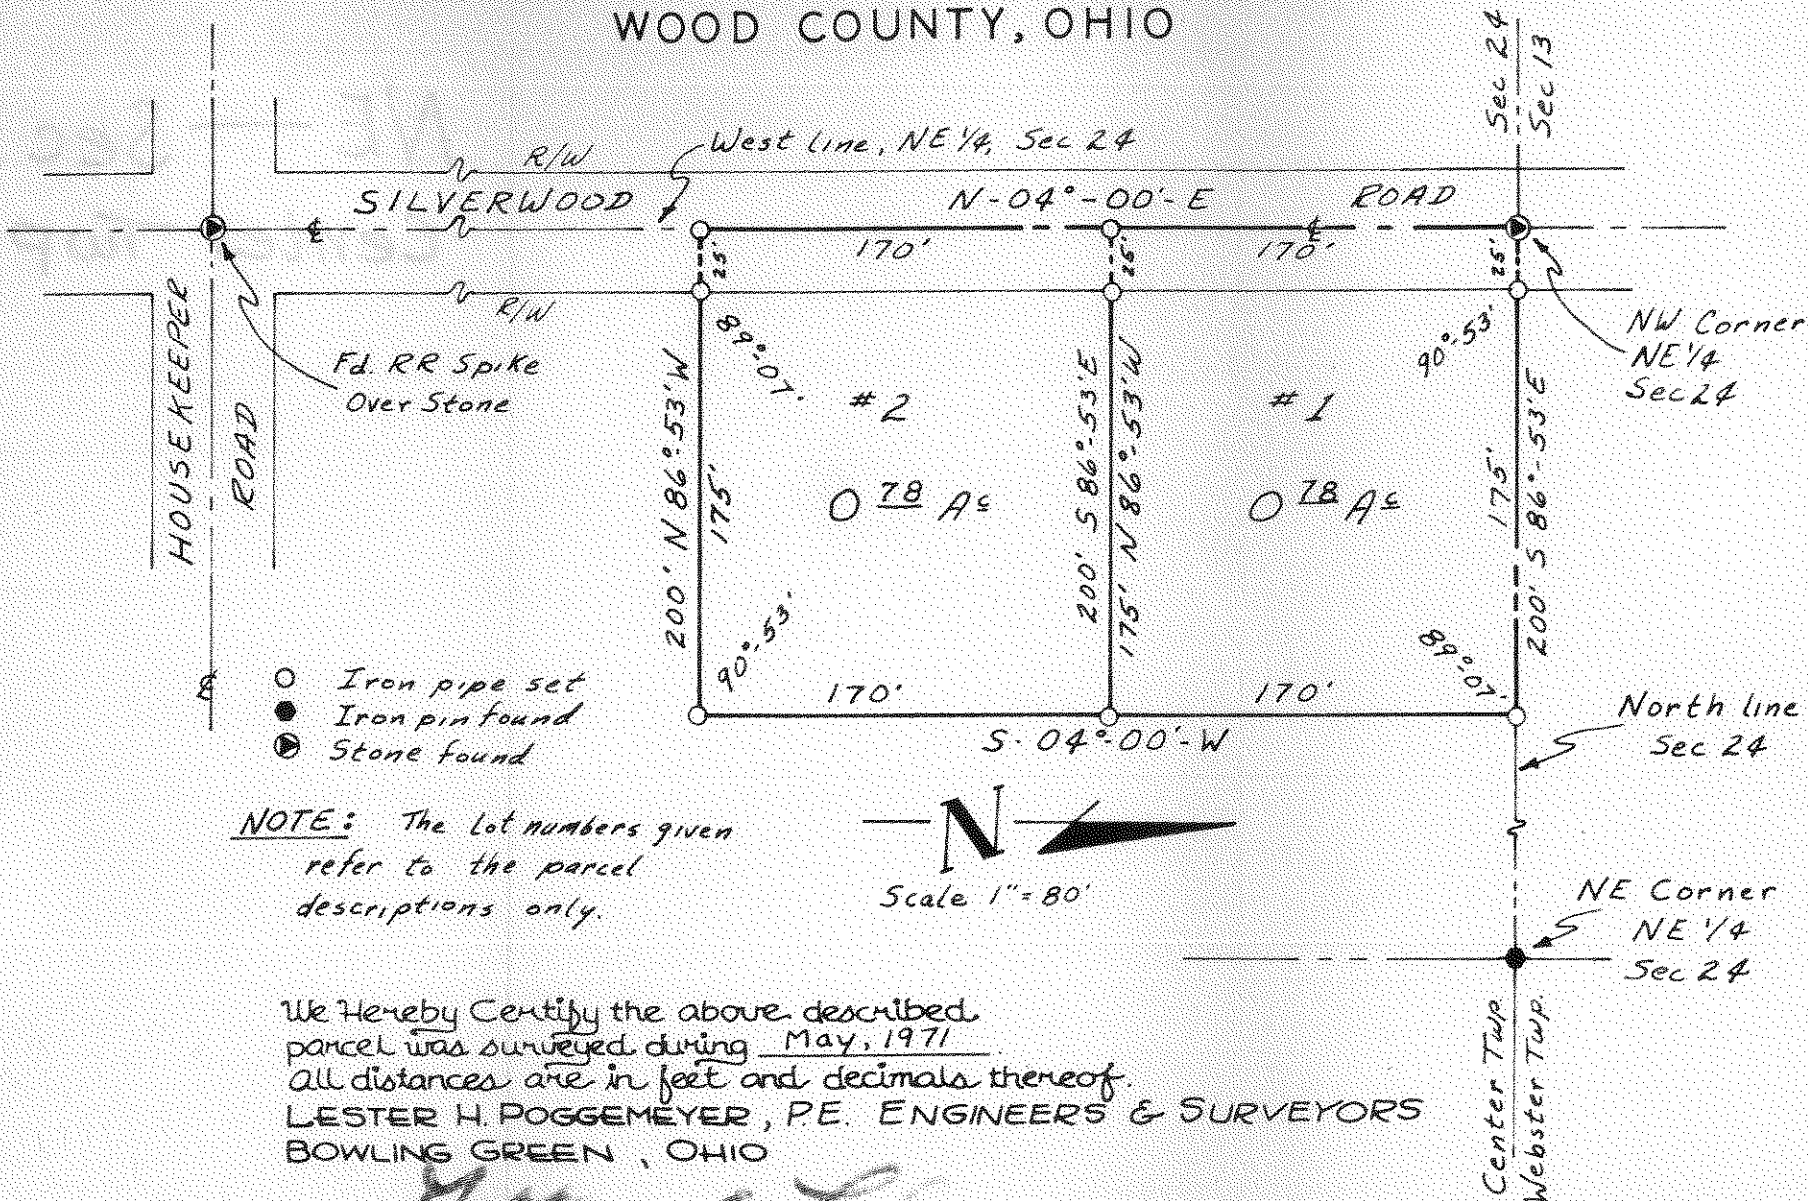 WOOD COUNTY, OHIO
Sec 24
Sec 13
West line, NE 1/4, Sec 24
R/W
SILVERWOOD
N-04°-00'-E
ROAD
℄
℄
170'
170'
25'
25'
25'
R/W
HOUSEKEEPER
ROAD
Fd. RR Spike
Over Stone
NW Corner
NE 1/4
Sec 24
89°-07'
90°-53'
#2
#1
O 78 Ac
O 78 Ac
200' N 86°-53' W
175'
200' S 86°-53' E
175' N 86°-53' W
175'
200' S 86°-53' E
90°-53'
89°-07'
170'
170'
S-04°-00'-W
℄
Iron pipe set
Iron pin found
Stone found
North line
Sec 24
NOTE: The lot numbers given
refer to the parcel
descriptions only.
N
Scale 1"=80'
NE Corner
NE 1/4
Sec 24
Center Twp.
Webster Twp.
We Hereby Certify the above described
parcel was surveyed during May, 1971.
All distances are in feet and decimals thereof.
LESTER H. POGGEMEYER, P.E. ENGINEERS & SURVEYORS
BOWLING GREEN, OHIO